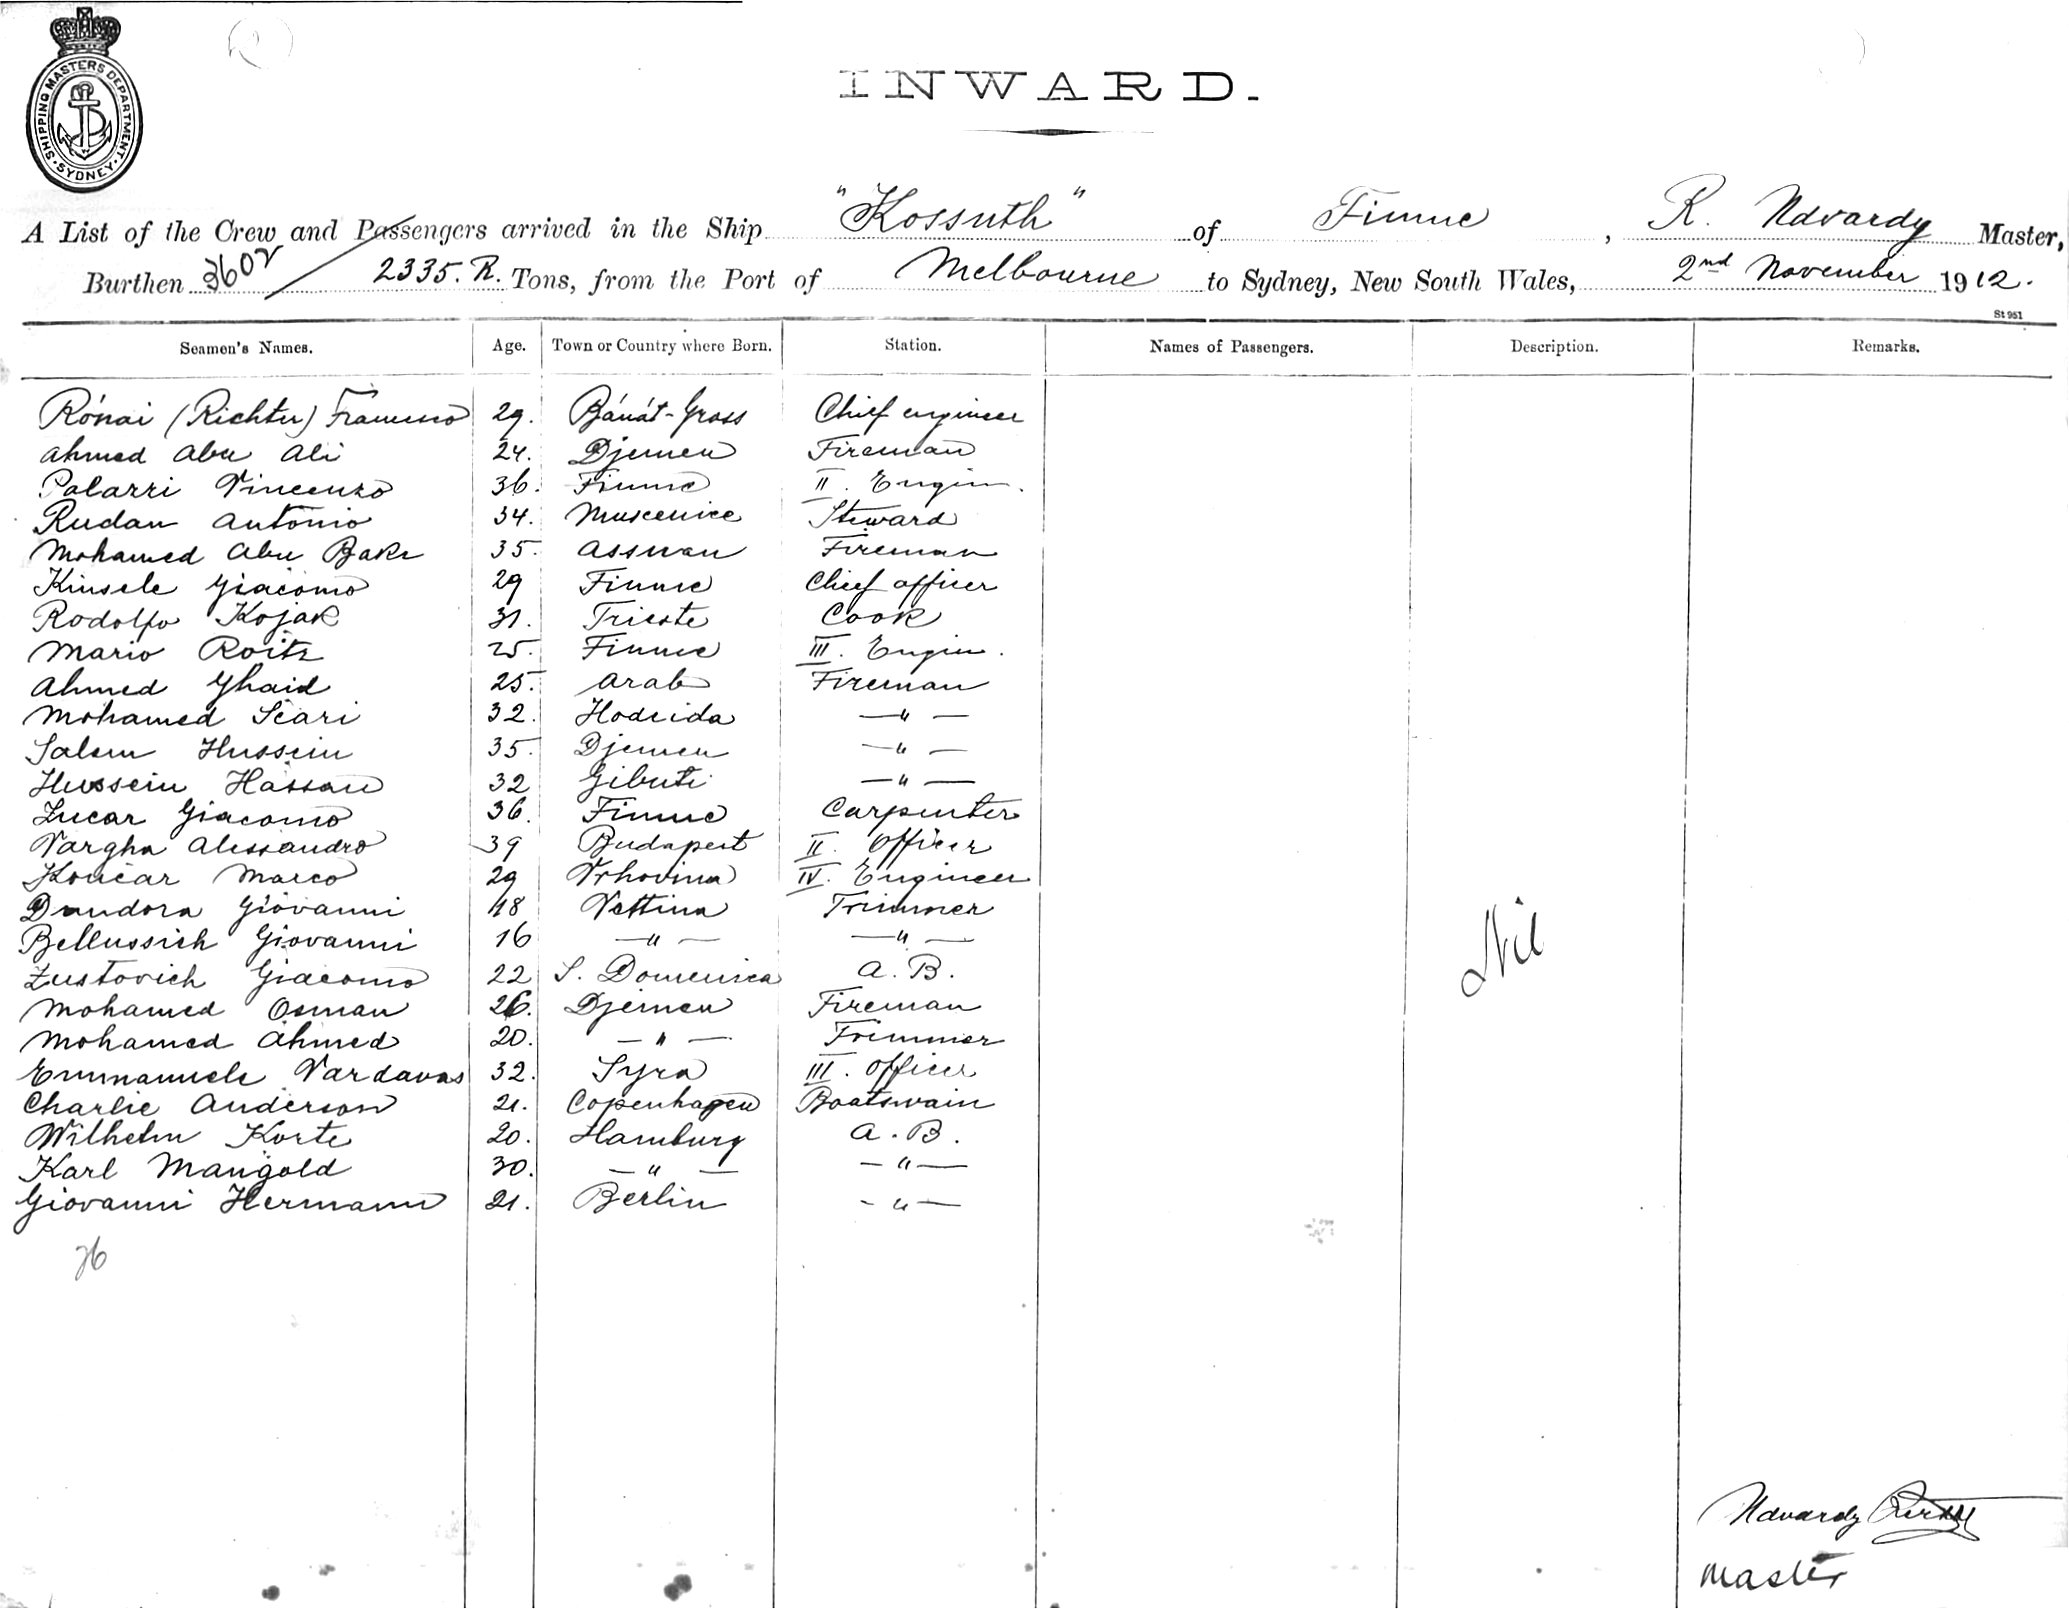 SHIPPING MASTERS DEPARTMENT · SYDNEY ·
INWARD.
A List of the Crew and Passengers arrived in the Ship "Kossuth" of Fiume, R. Udvardy Master,
Burthen 3602 / 2335. R. Tons, from the Port of Melbourne to Sydney, New South Wales, 2nd November 1912.
St 951
Seamen's Names. Age. Town or Country where Born. Station. Names of Passengers. Description. Remarks.
Rónai (Richter) Francesco 29. Bánát-Gross Chief engineer
Ahmed Abu Ali 24. Djemen Fireman
Polazzi Vincenzo 36. Fiume II. Engin.
Rudan Antonio 34. Muscenice Steward
Mohamed Abu Bakr 35. Assuan Fireman
Kinsele Giacomo 29 Fiume Chief officer
Rodolfo Kojak 31. Trieste Cook
Mario Roitz 25. Fiume III. Engin.
Ahmed Ghaid 25. Arab Fireman
Mohamed Scari 32. Hodeida — " —
Salem Hussein 35. Djemen — " —
Hussein Hassan 32 Gibuti — " —
Lucar Giacomo 36. Fiume Carpenter
Vargha Alessandro 39 Budapest II. Officer
Koncar Marco 29 Vrhovina IV. Engineer
Dundora Giovanni 18 Vettina Trimmer
Bellussich Giovanni 16 — " — — " —
Zustovich Giacomo 22 S. Domenica A. B.
Mohamed Osman 26. Djemen Fireman
Mohamed Ahmed 20. — " — Trimmer
Emmanuele Vardavas 32. Syra III. Officer
Charlie Anderson 21. Copenhagen Boatswain
Wilhelm Korte 20. Hamburg A. B.
Karl Mangold 30. — " — — " —
Giovanni Hermann 21. Berlin - " —
Nil
26
Udvardy
Master